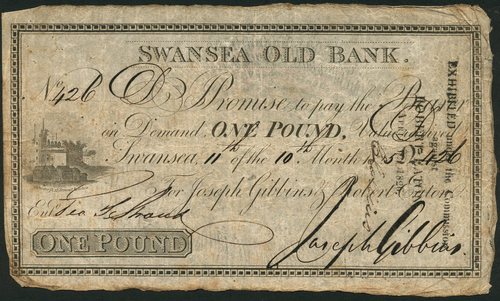 SWANSEA OLD BANK.
No. 426 I Promise to pay the Bearer
on Demand, ONE POUND, Value received
Swansea, 11th of the 10th Month No. 426
For Joseph Gibbins & Robert Eaton.
Entd
ONE POUND
Joseph Gibbins
EXHIBITED under the Commission
against
ROBERT EATON